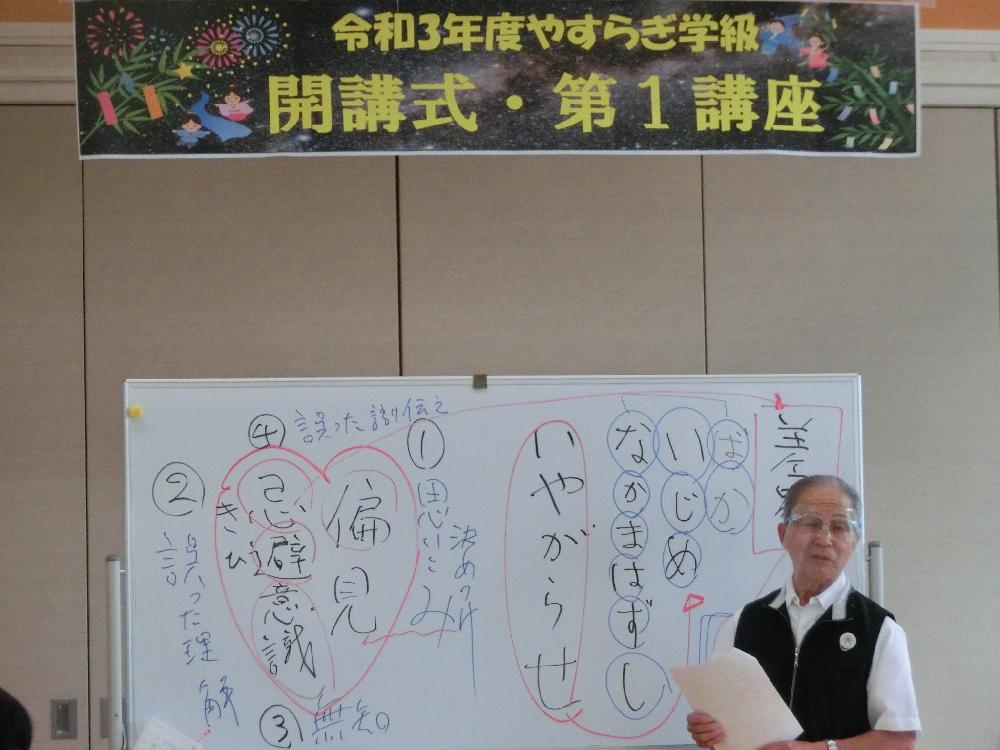 令和3年度やすらぎ学級
開講式・第1講座
ばか
いじめ
なかまはずし
いやがらせ
①思いこみ
④誤った言い伝え
偏見
忌避意識
きひ
②誤った理解
③無知